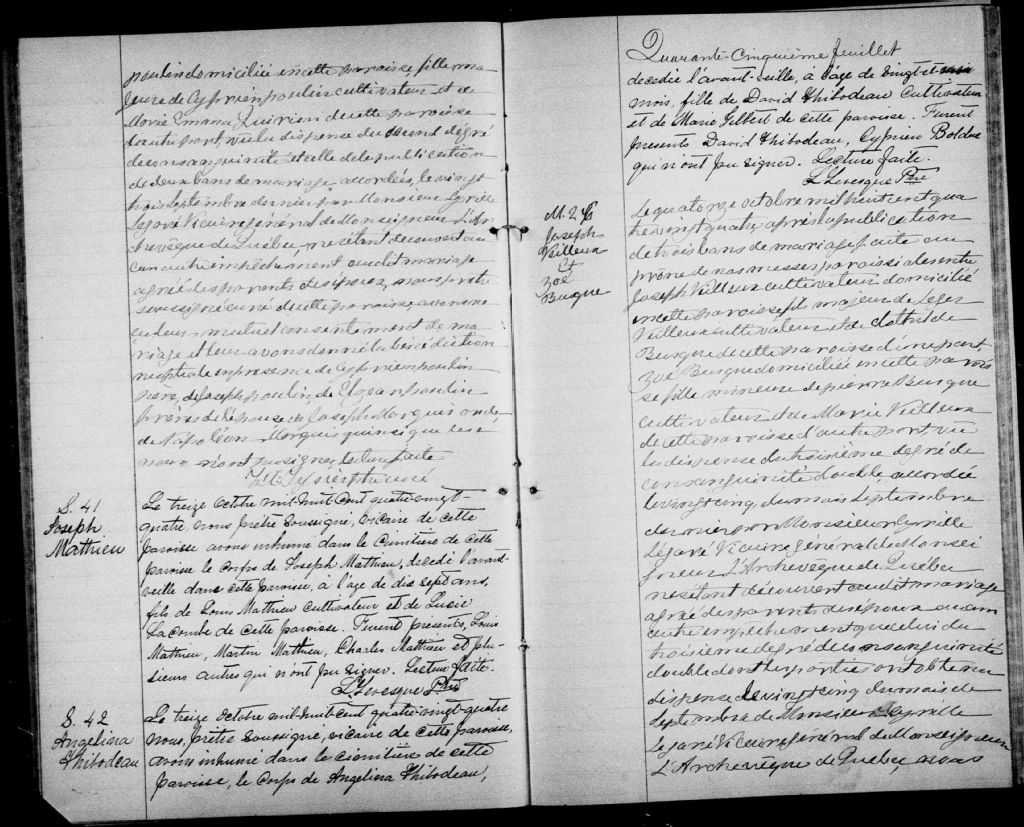 poulin domiciliée en cette paroisse, fille ma-
jeure de Cyprien poulin cultivateur et de
Marie Emma Quirion de cette paroisse
d'autre part, vu la dispense du second degré
de consanguinité et celle de la publication
de deux bans de mariage accordées, le vingt
trois septembre dernier par Monsieur Cyrille
Légaré Vicaire général de Monseigneur L'Ar
chevêque de Québec, ne s'étant découvert au
cun autre empêchement au dit mariage
agréé des parents des époux, nous prêtre
soussigné curé de cette paroisse, avons re
çu leur mutuel consentement de ma
riage et leur avons donné la bénédiction
nuptiale en présence de Cyprien poulin
père, de Joseph poulin, de Elzéar poulin
frères de l'épouse, de Joseph Morquis oncle,
de Napoléon Morquis qui ainsi que
nous n'ont pu signer, lecture faite
ptre curé
S. 41
Joseph
Mathieu
Le treize octobre mil-huit-cent quatre-vingt-
quatre, nous prêtre soussigné, vicaire de cette
paroisse avons inhumé dans le cimetière de cette
paroisse le corps de Joseph Mathieu, décédé l'avant-
veille dans cette paroisse, à l'âge de dix sept ans,
fils de Louis Mathieu cultivateur et de Lucie
Lacombe de cette paroisse. Furent présents, Louis
Mathieu, Martin Mathieu, Charles Mathieu et plu-
sieurs autres qui n'ont pu signer. Lecture faite.
L. Levesque Ptre
S. 42
Angelina
Thibodeau
Le treize octobre mil-huit-cent quatre-vingt-quatre
nous, prêtre soussigné, vicaire de cette paroisse,
avons inhumé dans le cimetière de cette
paroisse, le corps de Angelina Thibodeau,
Quarante-cinquième feuillet
décédée l'avant-veille, à l'âge de vingt-et-un
mois, fille de David Thibodeau Cultivateur
et de Marie Gilbert de cette paroisse. Furent
présents David Thibodeau, Cyprien Bolduc
qui n'ont pu signer. Lecture faite.
L. Levesque Ptre
M. 26
Joseph
Veilleux
et
Zoé
Busque
Le quatorze octobre mil huit cent qua
tre vingt quatre après la publication
de trois bans de mariage faite au
prône de nos messes paroissiales entre
Joseph Veilleux cultivateur domicilié
en cette paroisse fils majeur de Léger
Veilleux cultivateur et de Clothilde
Busque de cette paroisse d'une part,
Zoé Busque domiciliée en cette parois
se fille mineure de pierre Busque
cultivateur et de Marie Veilleux
de cette paroisse d'autre part, vu
la dispense du troisième degré de
consanguinité double, accordée
le vingt cinq du mois septembre
dernier par Monsieur Cyrille
Légaré Vicaire général de Monsei
gneur L'Archevêque de Québec
ne s'étant découvert au dit mariage
agréé des parents des époux aucun
autre empêchement que celui du
troisième degré de consanguinité
double dont les parties ont obtenu
dispense le vingt cinq du mois de
septembre de Monsieur Cyrille
Légaré Vicaire général de Monseigneur
L'Archevêque de Québec, nous